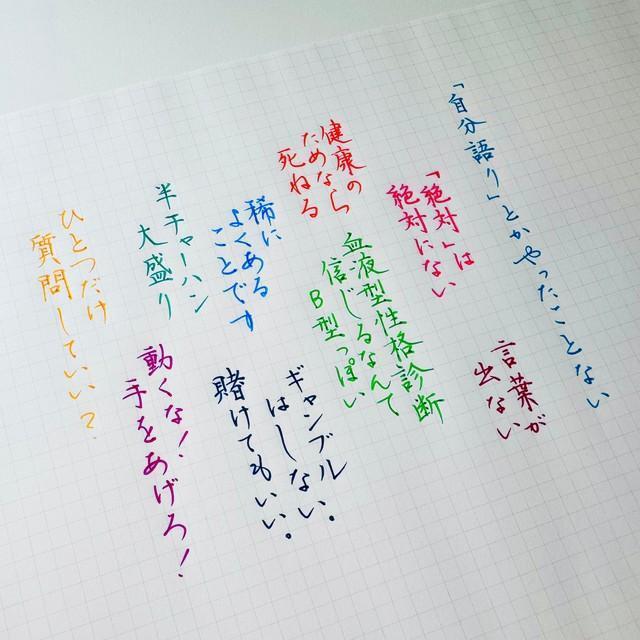 「自分語り」とかやったことない
「絶対」は
絶対にない
言葉が
出ない
健康の
ためなら
死ねる
血液型性格診断
信じるなんて
B型っぽい
稀に
よくある
ことです
ギャンブル。
はしない。
賭けてもいい。
半チャーハン
大盛り
動くな!
手をあげろ!
ひとつだけ
質問していい?